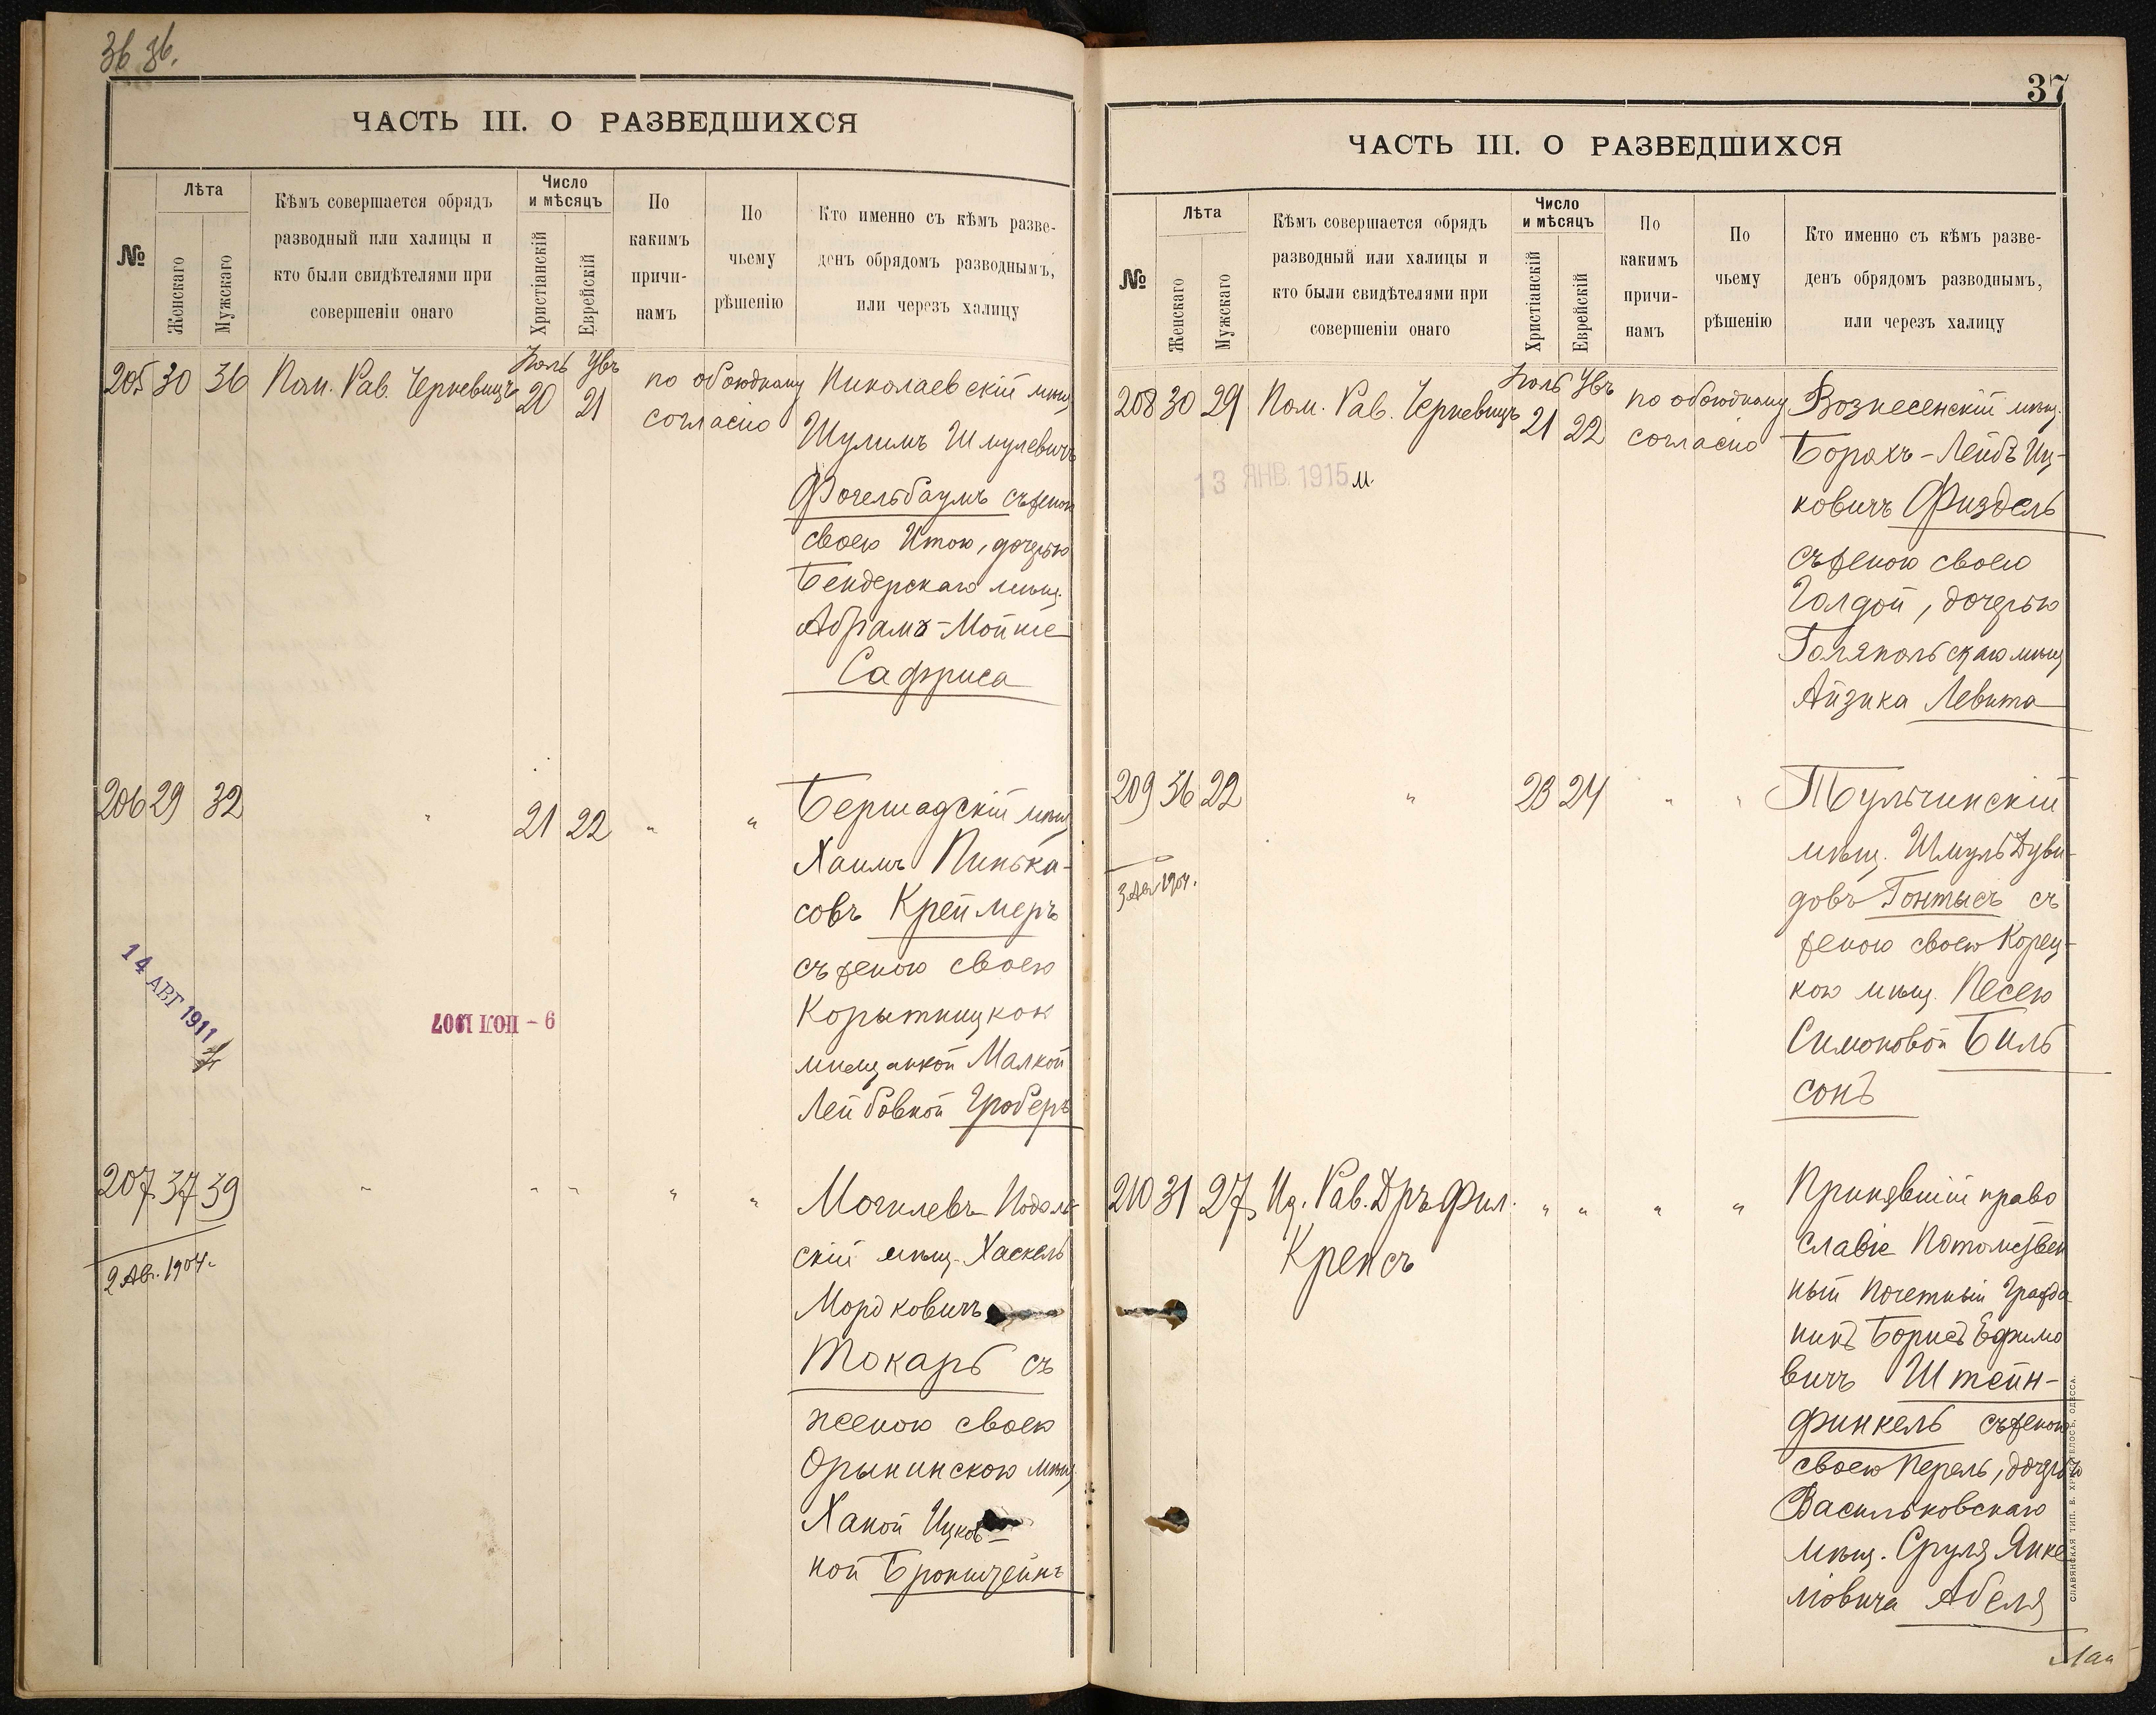 36 36.
ЧАСТЬ III. О РАЗВЕДШИХСЯ
№
Лѣта
Женскаго
Мужскаго
Кѣмъ совершается обрядъ
разводный или халицы и
кто были свидѣтелями при
совершеніи онаго
Число
и мѣсяцъ
Христіанскій
Еврейскій
По
какимъ
причи-
намъ
По
чьему
рѣшенію
Кто именно съ кѣмъ разве-
денъ обрядомъ разводнымъ,
или черезъ халицу
205 30 36 Пом. Рав. Черкевицъ 20 21 по обоюдному Николаевскій мѣщ.
согласію
Шулимъ Шмулевичъ
Фогельбаумъ съ женою
своею Итою, дочерью
Бендерскаго мѣщ.
Абрамъ-Мойше
Сафриса
206 29 32 " 21 22 " " Бершадскій мѣщ.
Хаимъ Пинька-
совъ Креймеръ
съ женою своею
Корытницкой
мѣщанкой Малкой
Лейбовной Гроберъ
14 АВГ 1911
9 - ІЮЛ 1907
207 37 39 " " " " " Могилевъ-Подоль-
скій мѣщ. Хаскель
Мордковичъ
Токарь съ
женою своею
Орынинскою мѣщ.
Ханой Ицков-
ной Бронштейнъ
2 Авг. 1904.
37
ЧАСТЬ III. О РАЗВЕДШИХСЯ
№
Лѣта
Женскаго
Мужскаго
Кѣмъ совершается обрядъ
разводный или халицы и
кто были свидѣтелями при
совершеніи онаго
Число
и мѣсяцъ
Христіанскій
Еврейскій
По
какимъ
причи-
намъ
По
чьему
рѣшенію
Кто именно съ кѣмъ разве-
денъ обрядомъ разводнымъ,
или черезъ халицу
208 30 29 Пом. Рав. Черкевицъ 21 22 по обоюдному Вознесенскій мѣщ.
согласію
Борахъ-Лейбъ Иц-
ковичъ Физдель
съ женою своею
Голдой, дочерью
Голяпольскаго мѣщ
Айзика Левита
13 ЯНВ. 1915
209 36 22 " 23 24 " " Тульчинскій
мѣщ. Шмуль Дуви-
довъ Гонтысъ съ
женою своею Корец-
кою мѣщ. Песею
Симоновой Биль
сонъ
3 Авг 1904.
210 31 27 Ид. Рав. Дръ Фил. " " " " Принявшій право
Крепсъ
славіе Потомствен
ный почетный Гражда
нинъ Борисъ Ефимо
вичъ Штейн-
финкель съ женою
своею Перель, дочерью
Васильковскаго
мѣщ. Сруля Янке
ліовича Абеля
СЛАВЯНСКАЯ ТИП. Н. ХРИСОГЕЛОСЪ, ОДЕССА.